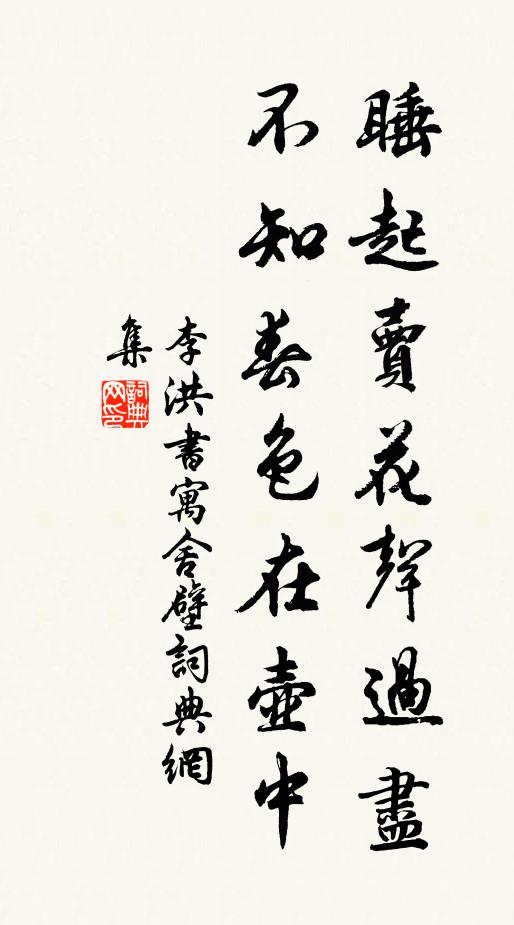 睡起賣花聲過盡
不知春色在壺中
李洪書寓舍壁詞典網
集
詞典
网印